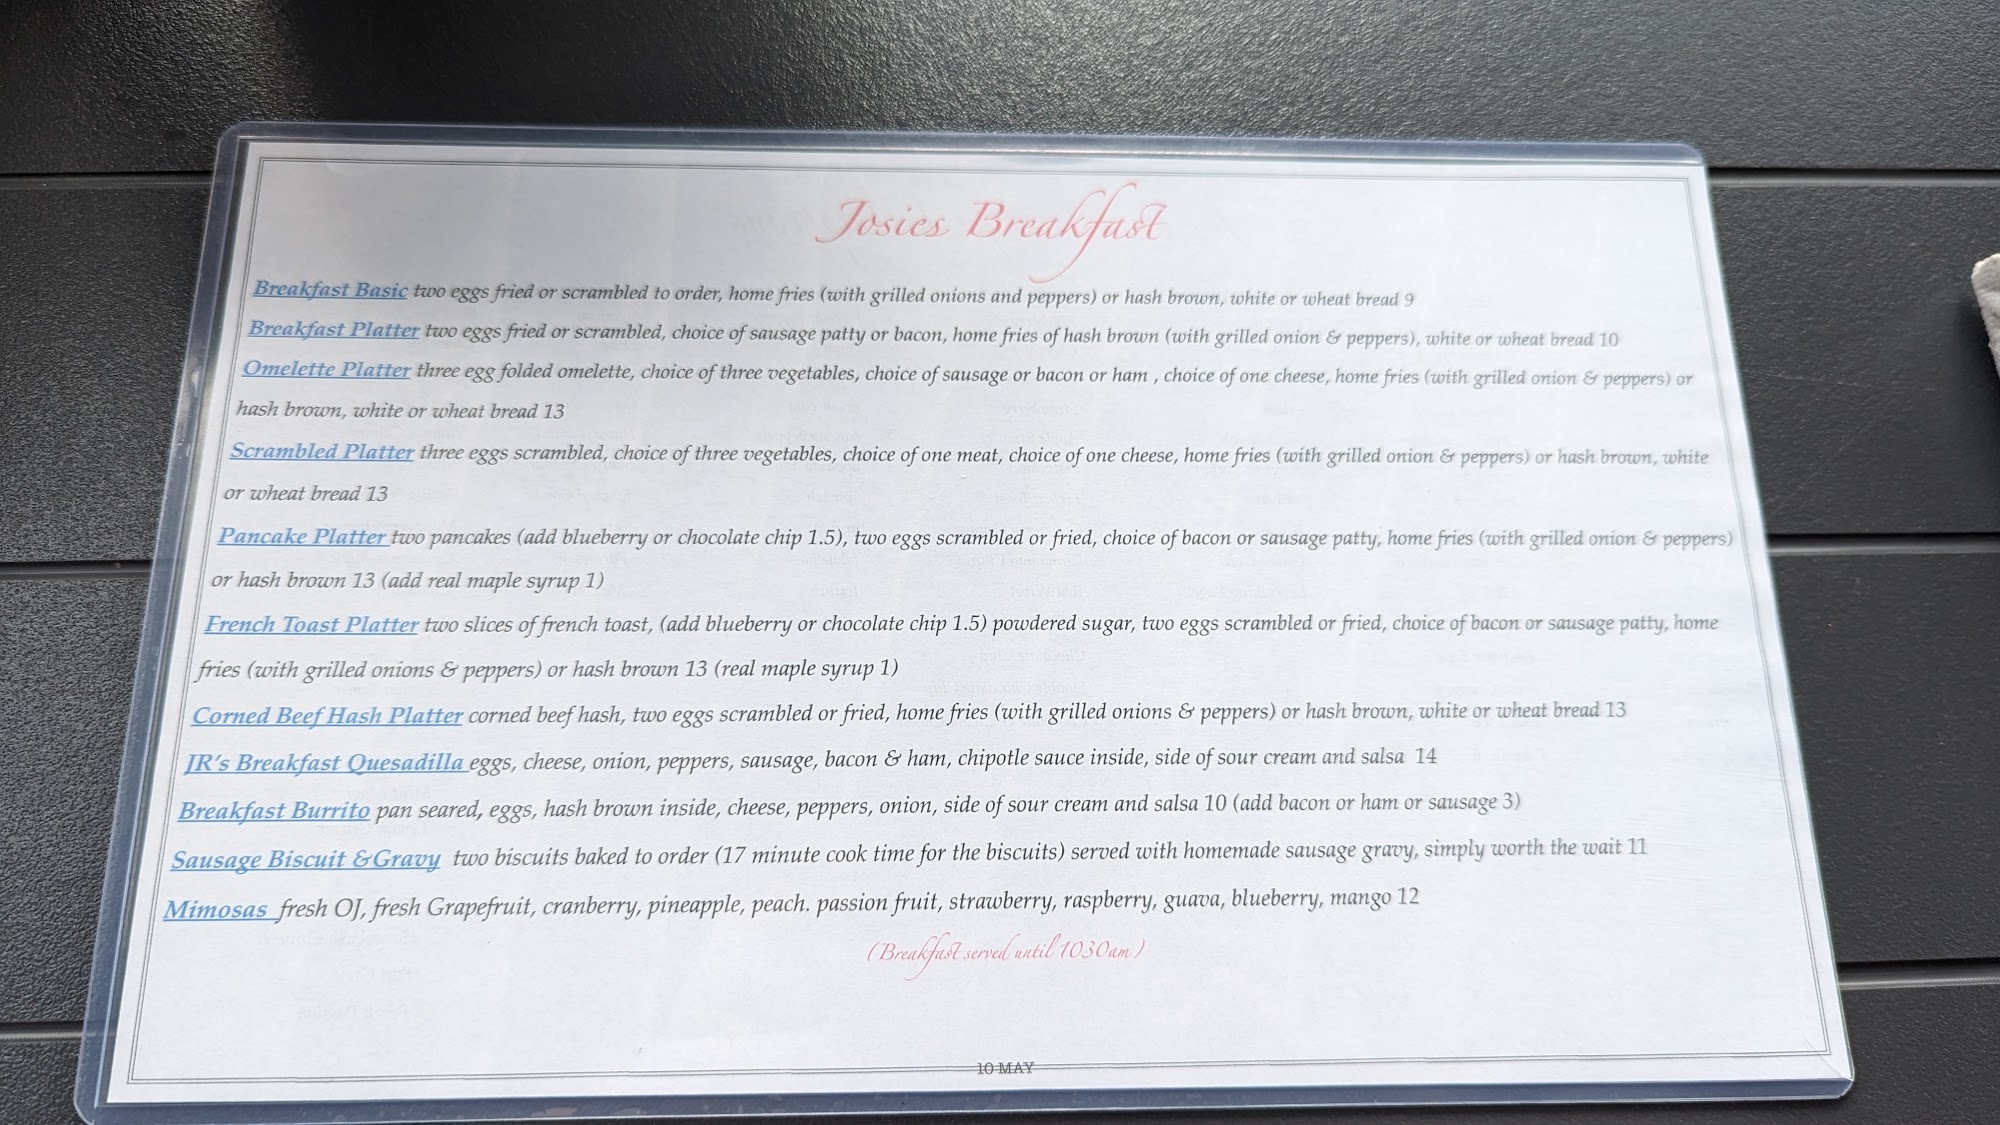 Josies Breakfast
Breakfast Basic two eggs fried or scrambled to order, home fries (with grilled onions and peppers) or hash brown, white or wheat bread 9
Breakfast Platter two eggs fried or scrambled, choice of sausage patty or bacon, home fries of hash brown (with grilled onion & peppers), white or wheat bread 10
Omelette Platter three egg folded omelette, choice of three vegetables, choice of sausage or bacon or ham , choice of one cheese, home fries (with grilled onion & peppers) or
hash brown, white or wheat bread 13
Scrambled Platter three eggs scrambled, choice of three vegetables, choice of one meat, choice of one cheese, home fries (with grilled onion & peppers) or hash brown, white
or wheat bread 13
Pancake Platter two pancakes (add blueberry or chocolate chip 1.5), two eggs scrambled or fried, choice of bacon or sausage patty, home fries (with grilled onion & peppers)
or hash brown 13 (add real maple syrup 1)
French Toast Platter two slices of french toast, (add blueberry or chocolate chip 1.5) powdered sugar, two eggs scrambled or fried, choice of bacon or sausage patty, home
fries (with grilled onions & peppers) or hash brown 13 (real maple syrup 1)
Corned Beef Hash Platter corned beef hash, two eggs scrambled or fried, home fries (with grilled onions & peppers) or hash brown, white or wheat bread 13
JR's Breakfast Quesadilla eggs, cheese, onion, peppers, sausage, bacon & ham, chipotle sauce inside, side of sour cream and salsa 14
Breakfast Burrito pan seared, eggs, hash brown inside, cheese, peppers, onion, side of sour cream and salsa 10 (add bacon or ham or sausage 3)
Sausage Biscuit &Gravy two biscuits baked to order (17 minute cook time for the biscuits) served with homemade sausage gravy, simply worth the wait 11
Mimosas fresh OJ, fresh Grapefruit, cranberry, pineapple, peach. passion fruit, strawberry, raspberry, guava, blueberry, mango 12
(Breakfast served until 1030am)
10 MAY